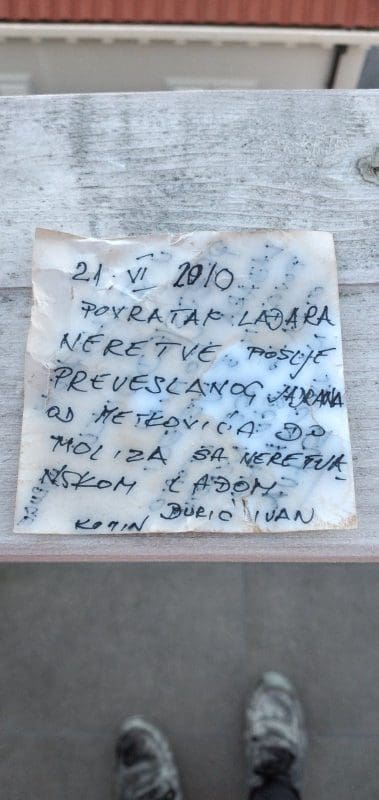 21. VI 2010
POVRATAK LAĐARA
NERETVE POSLJE
PREVESLANOG JADRANA
OD METKOVIĆA DO
MOLIZA SA NERETVA
NSKOM LAĐOM
KOMIN ĐURIĆ IVAN